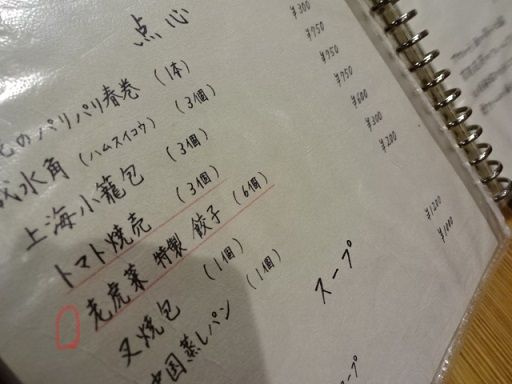 点心
のパリパリ春巻 (1本) ¥300
水角 (ハムスイコウ) (3個) ¥750
上海小籠包 (3個) ¥750
トマト焼売 (3個) ¥750
老虎菜 特製 餃子 (6個) ¥600
叉焼包 (1個) ¥300
中国蒸しパン (1個) ¥200
スープ
¥1200
¥1000
ープ